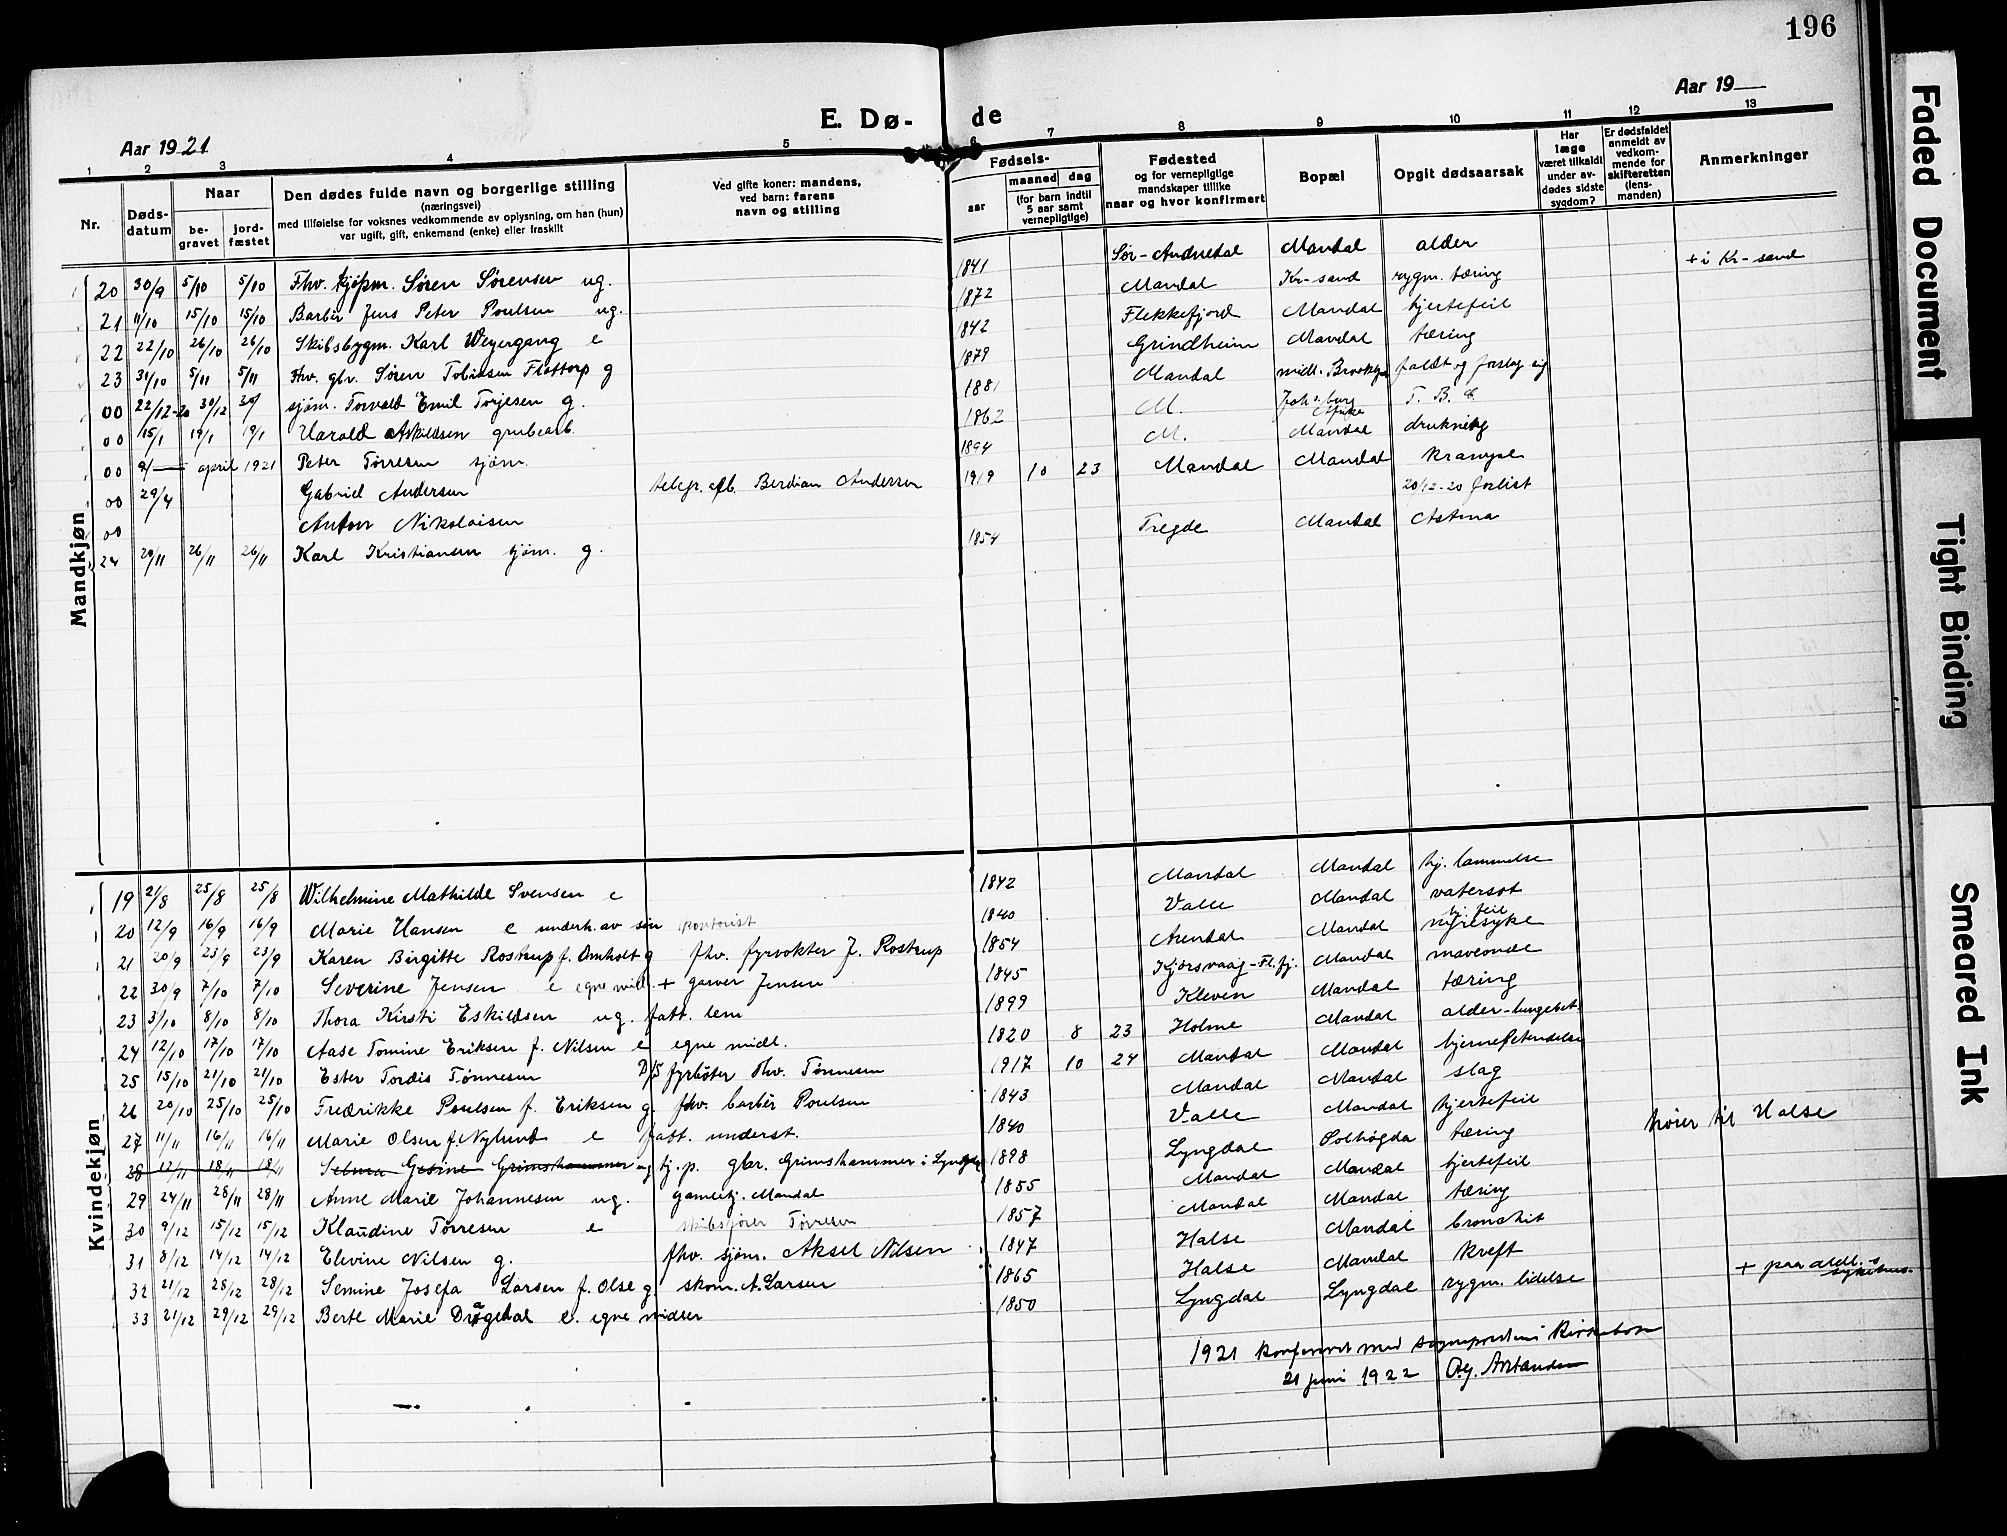 196
Aar 19
E. Dø- de
Aar 1921
1 2 3 4 5 6 7 8 9 10 11 12 13
Nr.
Døds-datum
Naar
be-gravet
jord-fæstet
Den dødes fulde navn og borgerlige stilling
(næringsvei)
med tilføielse for voksnes vedkommende av oplysning, om han (hun)
var ugift, gift, enkemand (enke) eller fraskilt
Ved gifte koner: mandens,
ved barn: farens
navn og stilling
Fødsels-
aar
maaned dag
(for barn indtil
5 aar samt
vernepligtige)
Fødested
og for vernepligtige
mandskaper tillike
naar og hvor konfirmert
Bopæl
Opgit dødsaarsak
Har
læge
været tilkaldt
under av-
dødes sidste
sygdom?
Er dødsfaldet
anmeldt av
vedkom-
mende for
skifteretten
(lens-
manden)
Anmerkninger
Mandkjøn
20 30/9 5/10 5/10 Fhv. kjøpm. Søren Sørensen ug. 1841 Sør-Audnedal Mandal alder
21 11/10 15/10 15/10 Barbér Jens Peter Poulsen ug. 1872 Mandal Kr-sand rygm. tæring + i Kr-sand
22 22/10 26/10 26/10 Skibsbygm. Karl Weyergang e 1842 Flekkefjord Mandal hjertefeil
23 31/10 5/11 5/11 Fhv. gbr. Søren Tobiasen Flottorp g 1879 Grindheim Mandal tæring
00 22/12-20 30/12 sjøm. Torvald Emil Torjesen g. 1881 Mandal midl. Brooklyn faldt og forslog sig
00 15/1 19/1 19/1 Harald Askildsen grubearb. 1862 M. Joh's burg Afrika T. B. C.
00 april 1921 Peter Tørresen sjøm. 1894 M. Mandal drukning
00 29/4 Gabriel Andersen telegr. Berdian Andersen 1919 10 23 Mandal Mandal krampe
00 Anton Nikolaisen 20/12-20 forlist
24 20/11 26/11 26/11 Karl Kristiansen sjøm. g. 1854 Tregde Mandal Astma
Kvindekjøn
19 21/8 25/8 25/8 Wilhelmine Mathilde Svensen e 1842 Mandal Mandal hj. lammelse
20 12/9 16/9 16/9 Marie Hansen e underh. av søn kontorist 1840 Valle Mandal vatersot
21 20/9 23/9 23/9 Karen Birgitte Rostrup f. Omholt g fhv. fyrvokter J. Rostrup 1854 Arendal Mandal hj. feil nyresyke
22 30/9 7/10 7/10 Severine Jensen e egne midl. + garver Jensen 1845 Kjørsvaag-Fl.fj. Mandal maveonde
23 3/10 8/10 8/10 Thora Kirsti Eskildsen ug. fatt. lem 1899 Kleven Mandal tæring
24 12/10 17/10 17/10 Aase Tomine Eriksen f. Nilsen e egne midl. 1820 8 23 Holme Mandal alder-lungebet.
25 15/10 21/10 21/10 Ester Tordis Tønnesen D/S fyrbøter Thv. Tønnesen 1917 10 24 Mandal Mandal hjernebetendelse
26 20/10 25/10 25/10 Fredrikke Poulsen f. Eriksen g. fhv. barbér Poulsen 1843 Mandal Mandal slag
27 11/11 16/11 16/11 Marie Olsen f. Nylund e fatt. underst. 1840 Valle Mandal hjertefeil
28 12/11 18/11 18/11 Selma Gesine Grimshammer ug hj. p. gbr. Grimshammer i Lyngdal 1898 Lyngdal Solhøgda tæring hører til Halse
29 24/11 28/11 28/11 Anne Marie Johannesen ug. gamlehj. Mandal 1855 Mandal Mandal hjertefeil
30 9/12 15/12 15/12 Klaudine Tørresen e skibsfører Tørresen 1857 Mandal Mandal tæring
31 8/12 14/12 14/12 Elevine Nilsen g. fhv. sjøm. Aksel Nilsen 1847 Halse Mandal bronchit
32 21/12 28/12 28/12 Semine Josefa Larsen f. Olse g skom. A. Larsen 1865 Halse Mandal kreft
33 21/12 29/12 29/12 Berte Marie Drågedal e. egne midler 1850 Lyngdal Lyngdal rygm. lidelse + paa sykehus.
1921 konferert med sogneprestens kirkebok
21 juni 1922
Faded Document
Tight Binding
Smeared Ink